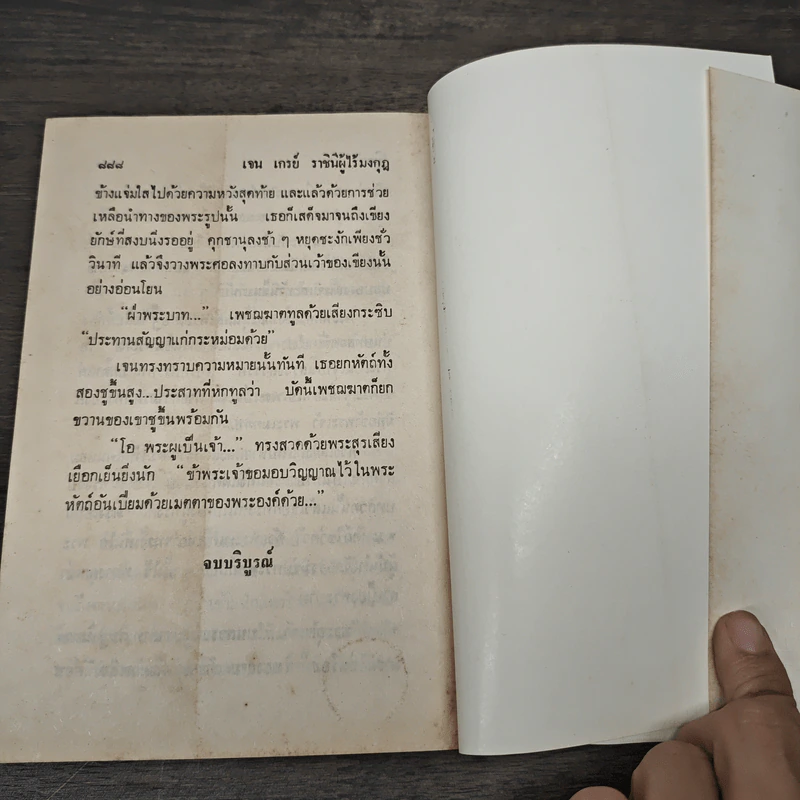 ๘๘๘ เจน เกรย์ ราชินีผู้ไร้มงกุฎ
ข้างแจ่มใสไปด้วยความหวังสุดท้าย และแล้วด้วยการช่วย
เหลือนำทางของพระรูปนั้น เธอก็เสด็จมาจนถึงเขียง
ยักษ์ที่สงบนิ่งรออยู่ คุกชานุลงช้า ๆ หยุดชะงักเพียงชั่ว
วินาที แล้วจึงวางพระศอลงทาบกับส่วนเว้าของเขียงนั้น
อย่างอ่อนโยน
“ฝ่าพระบาท...” เพชฌฆาตทูลด้วยเสียงกระซิบ
“ประทานสัญญาแก่กระหม่อมด้วย”
เจนทรงทราบความหมายนั้นทันที เธอยกหัตถ์ทั้ง
สองชูขึ้นสูง...ประสาทที่หกทูลว่า บัดนี้เพชฌฆาตก็ยก
ขวานของเขาชูขึ้นพร้อมกัน
“โอ พระผู้เป็นเจ้า...” ทรงสวดด้วยพระสุรเสียง
เยือกเย็นยิ่งนัก “ข้าพระเจ้าขอมอบวิญญาณไว้ในพระ
หัตถ์อันเปี่ยมด้วยเมตตาของพระองค์ด้วย...”
จบบริบูรณ์